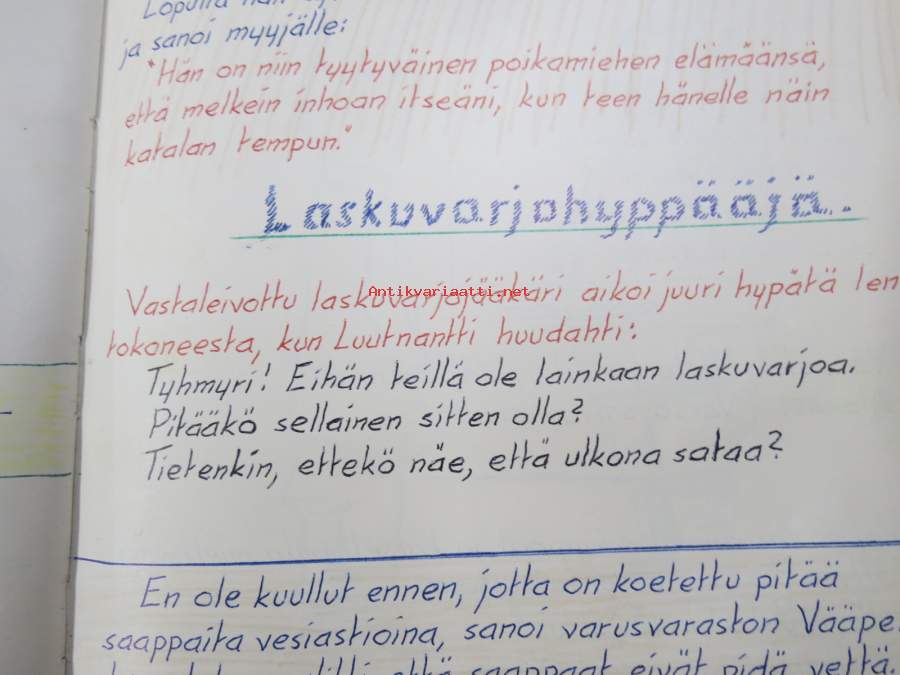 Lopulta hän
ja sanoi myyjälle:
"Hän on niin tyytyväinen poikamiehen elämäänsä,
että melkein inhoan itseäni, kun teen hänelle näin
katalan tempun."
Laskuvarjohyppääjä..
Vastaleivottu laskuvarjojääkäri aikoi juuri hypätä len
Antikvariaatti.net
tokoneesta, kun Luutnantti huudahti:
Tyhmyri! Eihän teillä ole lainkaan laskuvarjoa.
Pitääkö sellainen sitten olla?
Tietenkin, ettekö näe, että ulkona sataa?
En ole kuullut ennen, jotta on koetettu pitää
saappaita vesiastioina, sanoi varusvaraston Vääpe
että saappaat eivät pidä vettä.